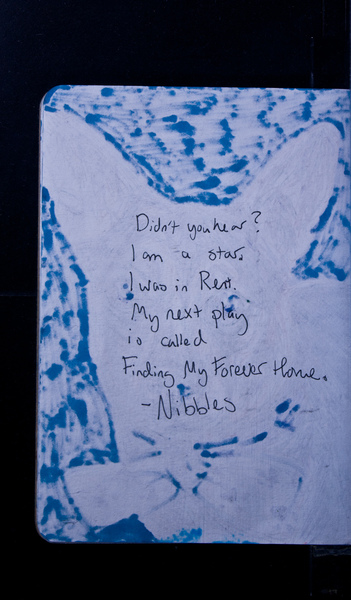 Didn't you hear?
I am a star.
I was in Rent.
My next play
is called
Finding My Forever Home.
- Nibbles